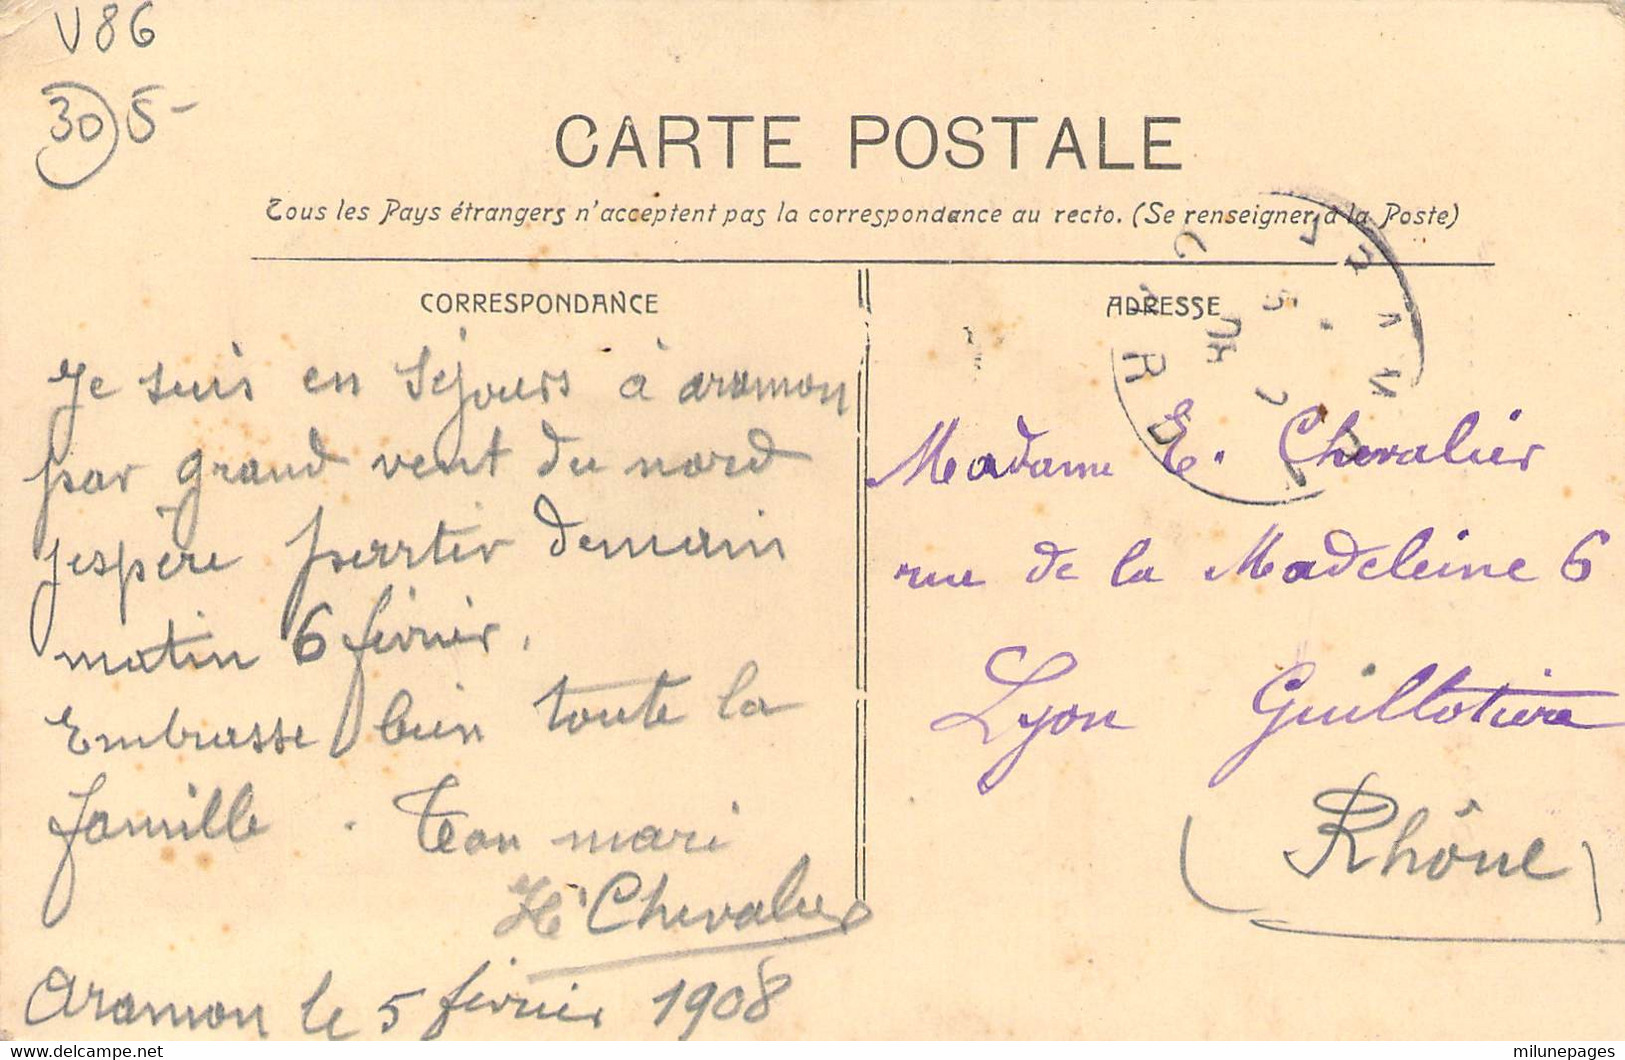 V86
30 5-
CARTE POSTALE
Tous les Pays étrangers n'acceptent pas la correspondance au recto. (Se renseigner à la Poste)
CORRESPONDANCE
Je suis en séjours à aramon
par grand vent du nord
jespère partir demain
matin 6 février.
Embrasse bien toute la
famille. Ton mari
Hri Chevalier
Aramon le 5 février 1908
ADRESSE
GARD
5
08
Madame E. Chevalier
rue de la Madeleine 6
Lyon Guillotière
(Rhône)
delcampe.net
milunepages